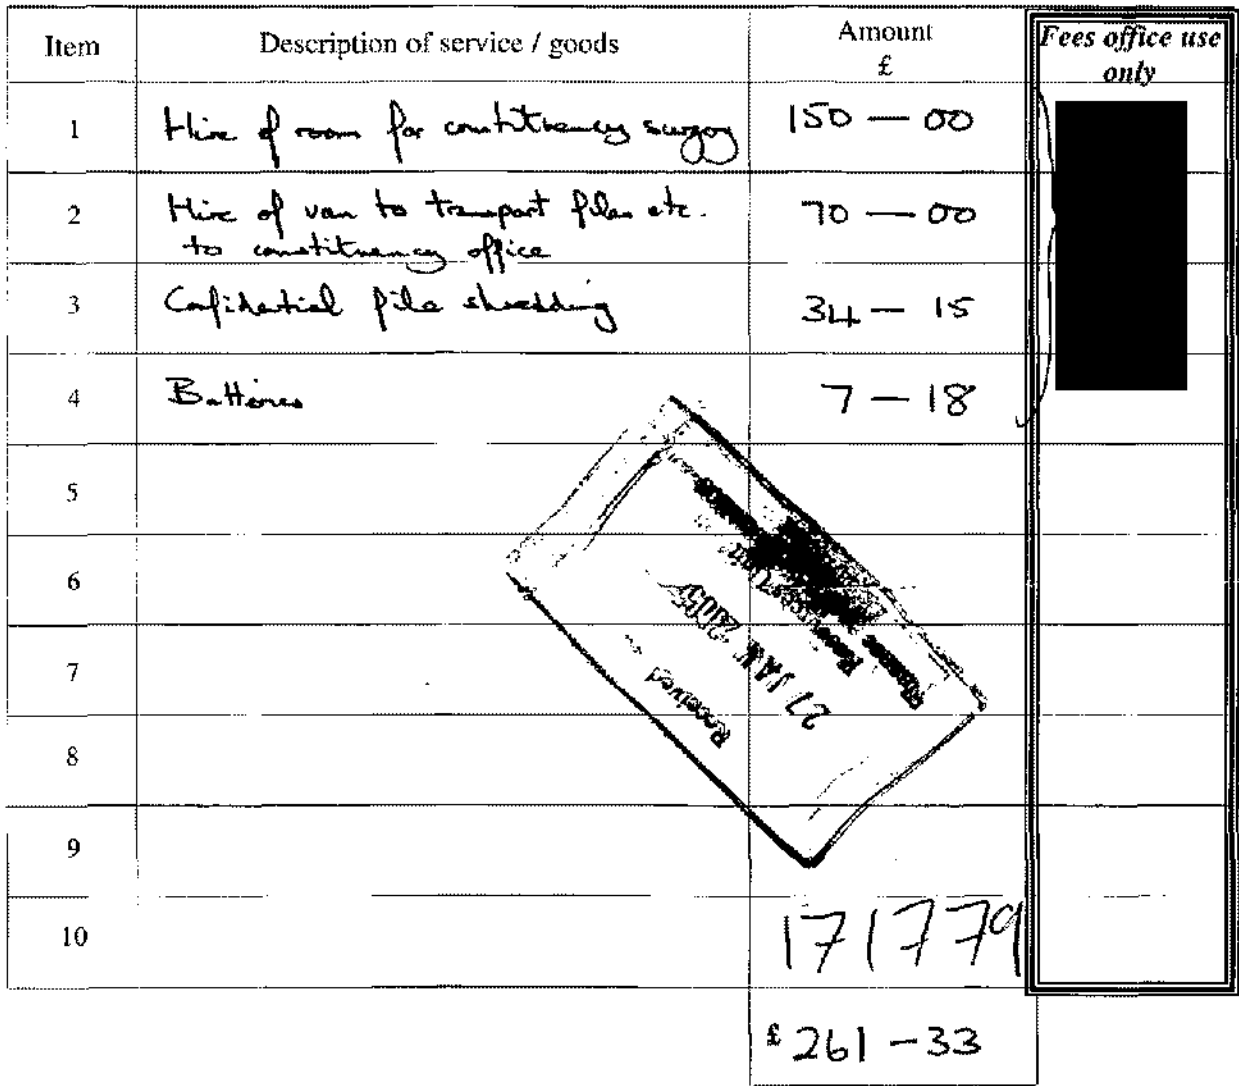 Item Description of service / goods Amount £ Fees office use only
1 Hire of room for constituency surgery 150 — 00
2 Hire of van to transport files etc. 70 — 00
to constituency office
3 Confidential file shredding 34 — 15
4 Batteries 7 — 18
5
6
7
8
9
10 171779
Received
27 JAN 2005
£ 261 - 33